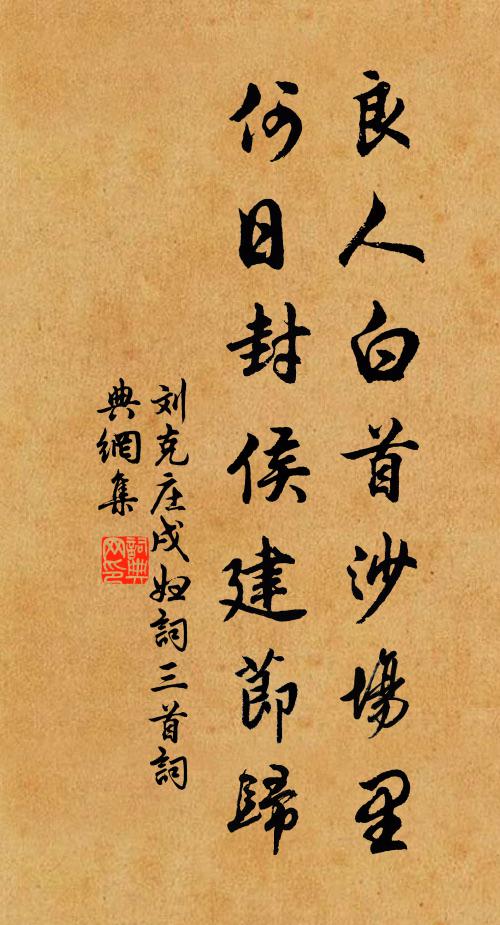 良人白首沙場里
何日封侯建節歸
刘克庄戍妇詞三首詞
典網集
詞典网印